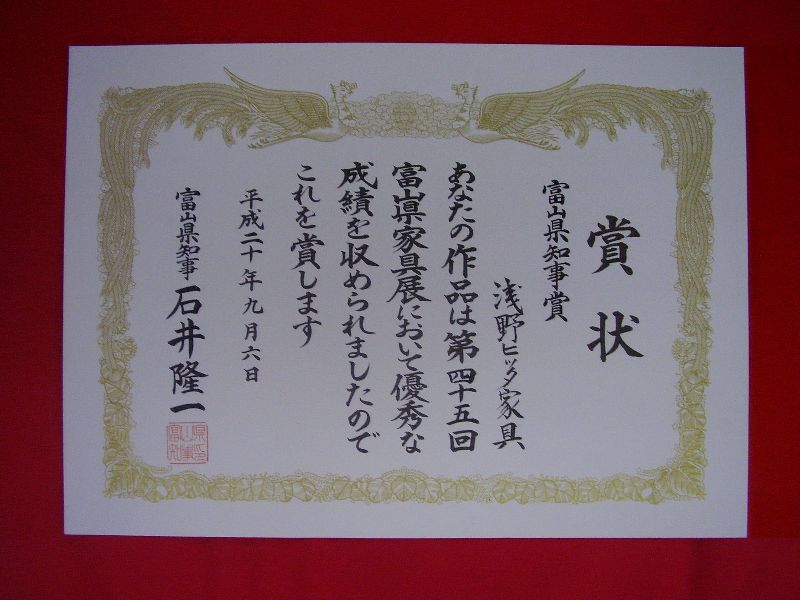 賞状
富山県知事賞
浅野ヒッタ家具
あなたの作品は第四十五回
富山県家具展において優秀な
成績を収められましたので
これを賞します
平成二十年九月六日
富山県知事 石井隆一